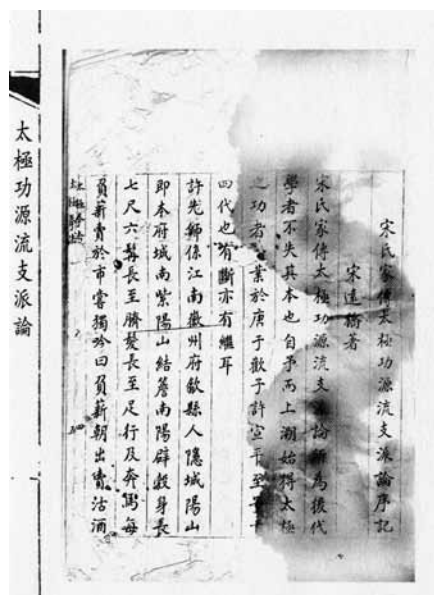 宋氏家傳太極功源流支派論序記
宋遠橋著
宋氏家傳太極功源流支派論所為後代
學者不失其本也自予而上溯始得太極
之功者業於唐于歡子許宣平至
四代也有斷亦有繼耳
許先師係江南徽州府歙縣人隱城陽山
即本府城南紫陽山結簷南陽辟穀身長
七尺六髯長至臍髮長至足行及奔馬每
負薪賣於市嘗獨吟曰負薪朝出賣沽酒
太極功源流支派論